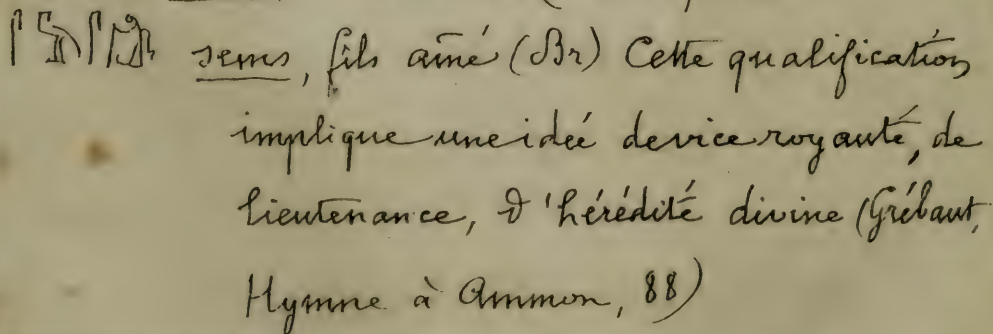 sems, fils aîné (Br) Cette qualification
implique une idée de vice royauté, de
lieutenance, d'hérédité divine (Grébaut,
Hymne à Ammon, 88)